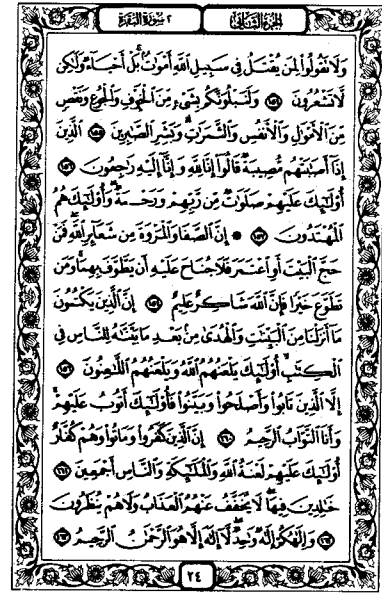 الجزء الثاني
٢ سورة البقرة
وَلَا تَقُولُوا۟ لِمَن يُقْتَلُ فِى سَبِيلِ ٱللَّهِ أَمْوَٰتٌۢ بَلْ أَحْيَآءٌ وَلَٰكِن
لَّا تَشْعُرُونَ ١٥٤ وَلَنَبْلُوَنَّكُم بِشَىْءٍ مِّنَ ٱلْخَوْفِ وَٱلْجُوعِ وَنَقْصٍ
مِّنَ ٱلْأَمْوَٰلِ وَٱلْأَنفُسِ وَٱلثَّمَرَٰتِ وَبَشِّرِ ٱلصَّٰبِرِينَ ١٥٥ ٱلَّذِينَ
إِذَآ أَصَٰبَتْهُم مُّصِيبَةٌ قَالُوٓا۟ إِنَّا لِلَّهِ وَإِنَّآ إِلَيْهِ رَٰجِعُونَ ١٥٦
أُو۟لَٰٓئِكَ عَلَيْهِمْ صَلَوَٰتٌ مِّن رَّبِّهِمْ وَرَحْمَةٌ وَأُو۟لَٰٓئِكَ هُمُ
ٱلْمُهْتَدُونَ ١٥٧ ۞ إِنَّ ٱلصَّفَا وَٱلْمَرْوَةَ مِن شَعَآئِرِ ٱللَّهِ فَمَنْ
حَجَّ ٱلْبَيْتَ أَوِ ٱعْتَمَرَ فَلَا جُنَاحَ عَلَيْهِ أَن يَطَّوَّفَ بِهِمَا وَمَن
تَطَوَّعَ خَيْرًا فَإِنَّ ٱللَّهَ شَاكِرٌ عَلِيمٌ ١٥٨ إِنَّ ٱلَّذِينَ يَكْتُمُونَ
مَآ أَنزَلْنَا مِنَ ٱلْبَيِّنَٰتِ وَٱلْهُدَىٰ مِنۢ بَعْدِ مَا بَيَّنَّٰهُ لِلنَّاسِ فِى
ٱلْكِتَٰبِ أُو۟لَٰٓئِكَ يَلْعَنُهُمُ ٱللَّهُ وَيَلْعَنُهُمُ ٱللَّٰعِنُونَ ١٥٩
إِلَّا ٱلَّذِينَ تَابُوا۟ وَأَصْلَحُوا۟ وَبَيَّنُوا۟ فَأُو۟لَٰٓئِكَ أَتُوبُ عَلَيْهِمْ
وَأَنَا ٱلتَّوَّابُ ٱلرَّحِيمُ ١٦٠ إِنَّ ٱلَّذِينَ كَفَرُوا۟ وَمَاتُوا۟ وَهُمْ كُفَّارٌ
أُو۟لَٰٓئِكَ عَلَيْهِمْ لَعْنَةُ ٱللَّهِ وَٱلْمَلَٰٓئِكَةِ وَٱلنَّاسِ أَجْمَعِينَ ١٦١
خَٰلِدِينَ فِيهَا لَا يُخَفَّفُ عَنْهُمُ ٱلْعَذَابُ وَلَا هُمْ يُنظَرُونَ
١٦٢ وَإِلَٰهُكُمْ إِلَٰهٌ وَٰحِدٌ لَّآ إِلَٰهَ إِلَّا هُوَ ٱلرَّحْمَٰنُ ٱلرَّحِيمُ ١٦٣
٢٤